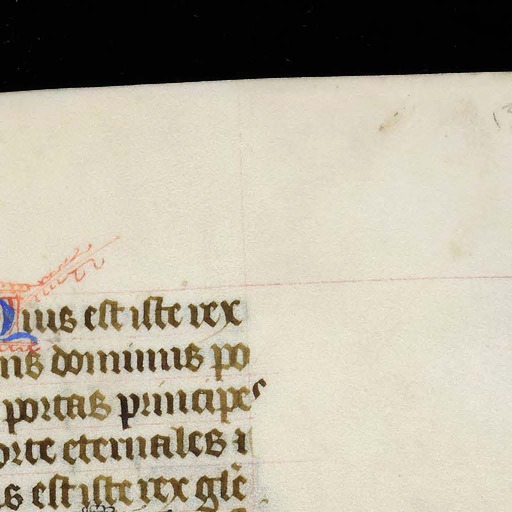 Quis est iste rex
ns dominus po
portas principes
orte eternales i
s est iste rex glē